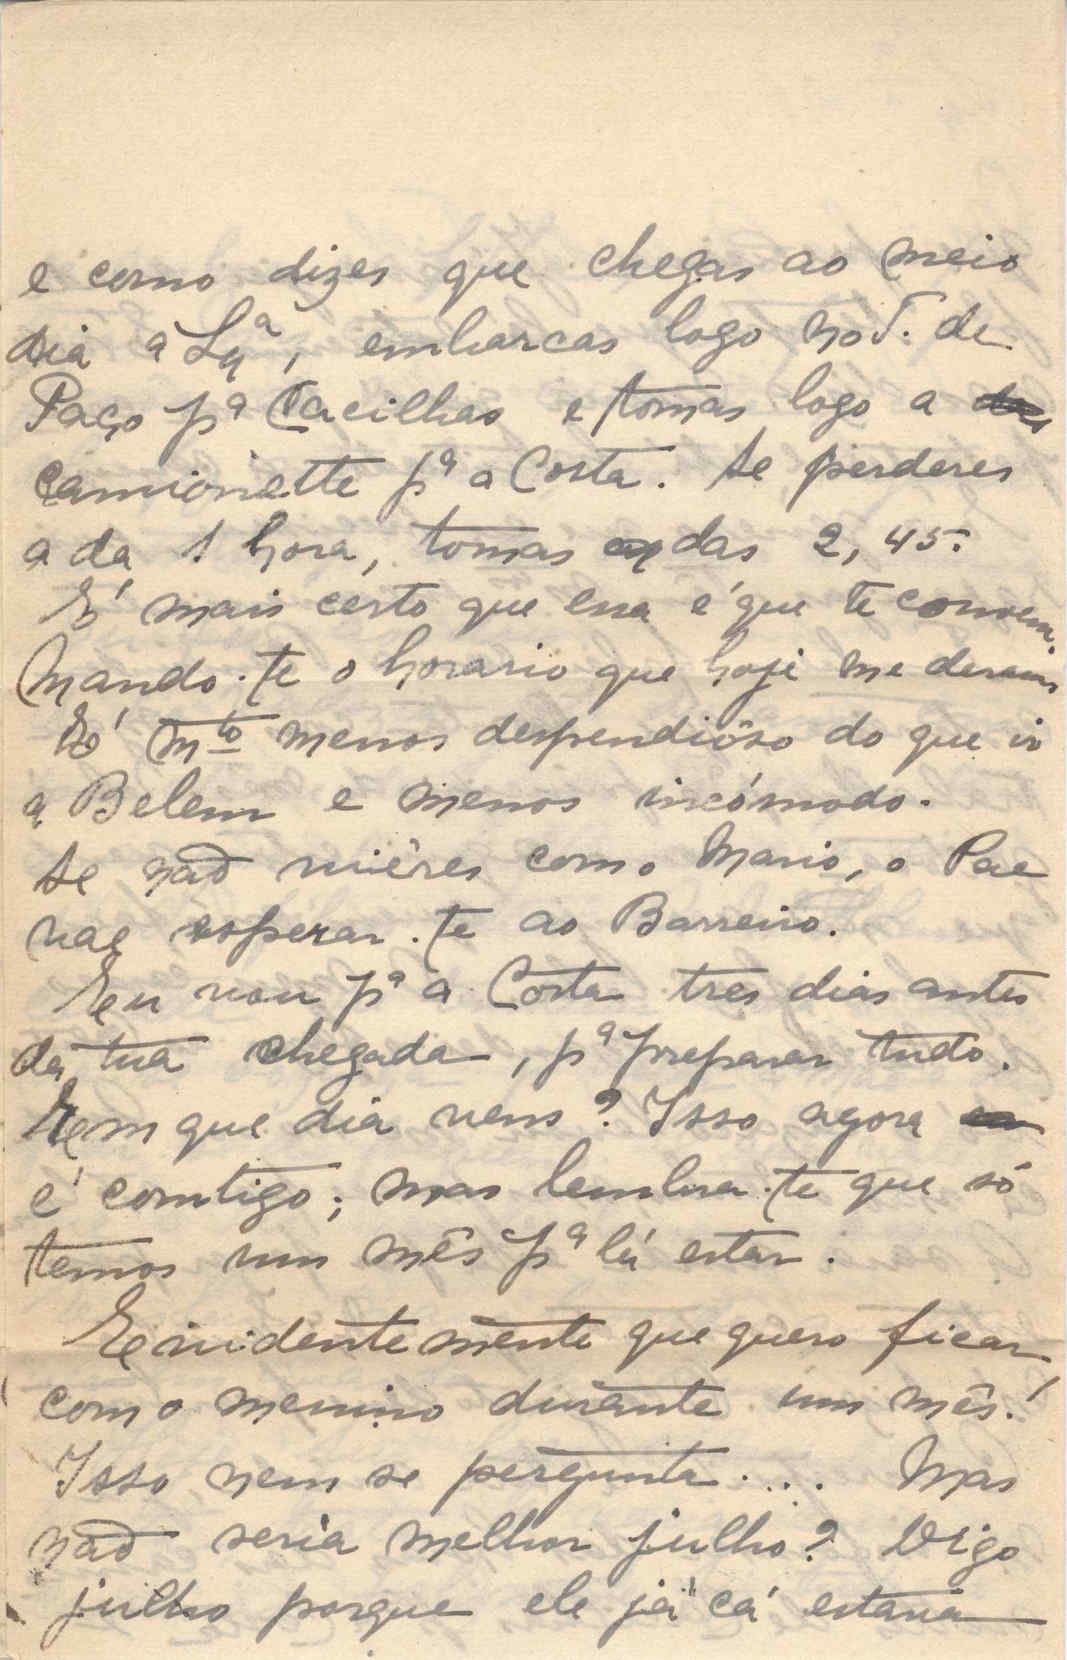 e como dizes que chegas ao meio
dia a Lxª, embarcas logo no T. de
Paço pª Cacilhas e tomas logo a
camionette pª a Costa. Se perderes
a da 1 hora, tomas a das 2,45.
É mais certo que essa é que te convem.
Mando-te o horario que hoje me deram
É mto menos despendiôso do que ir
a Belem e menos incómodo.
Se não viéres com o Mario, o Pae
vae esperar-te ao Barreiro.
Eu vou pª a Costa tres dias antes
da tua chegada, pª preparar tudo.
Em que dia vens? Isso agora
é comtigo; mas lembra-te que só
temos um mês pª lá estar.
Evidentemente que quero ficar,
com o menino durante um mês!
Isso nem se pergunta.... Mas
não seria melhor julho? Digo
julho porque ele já cá estava